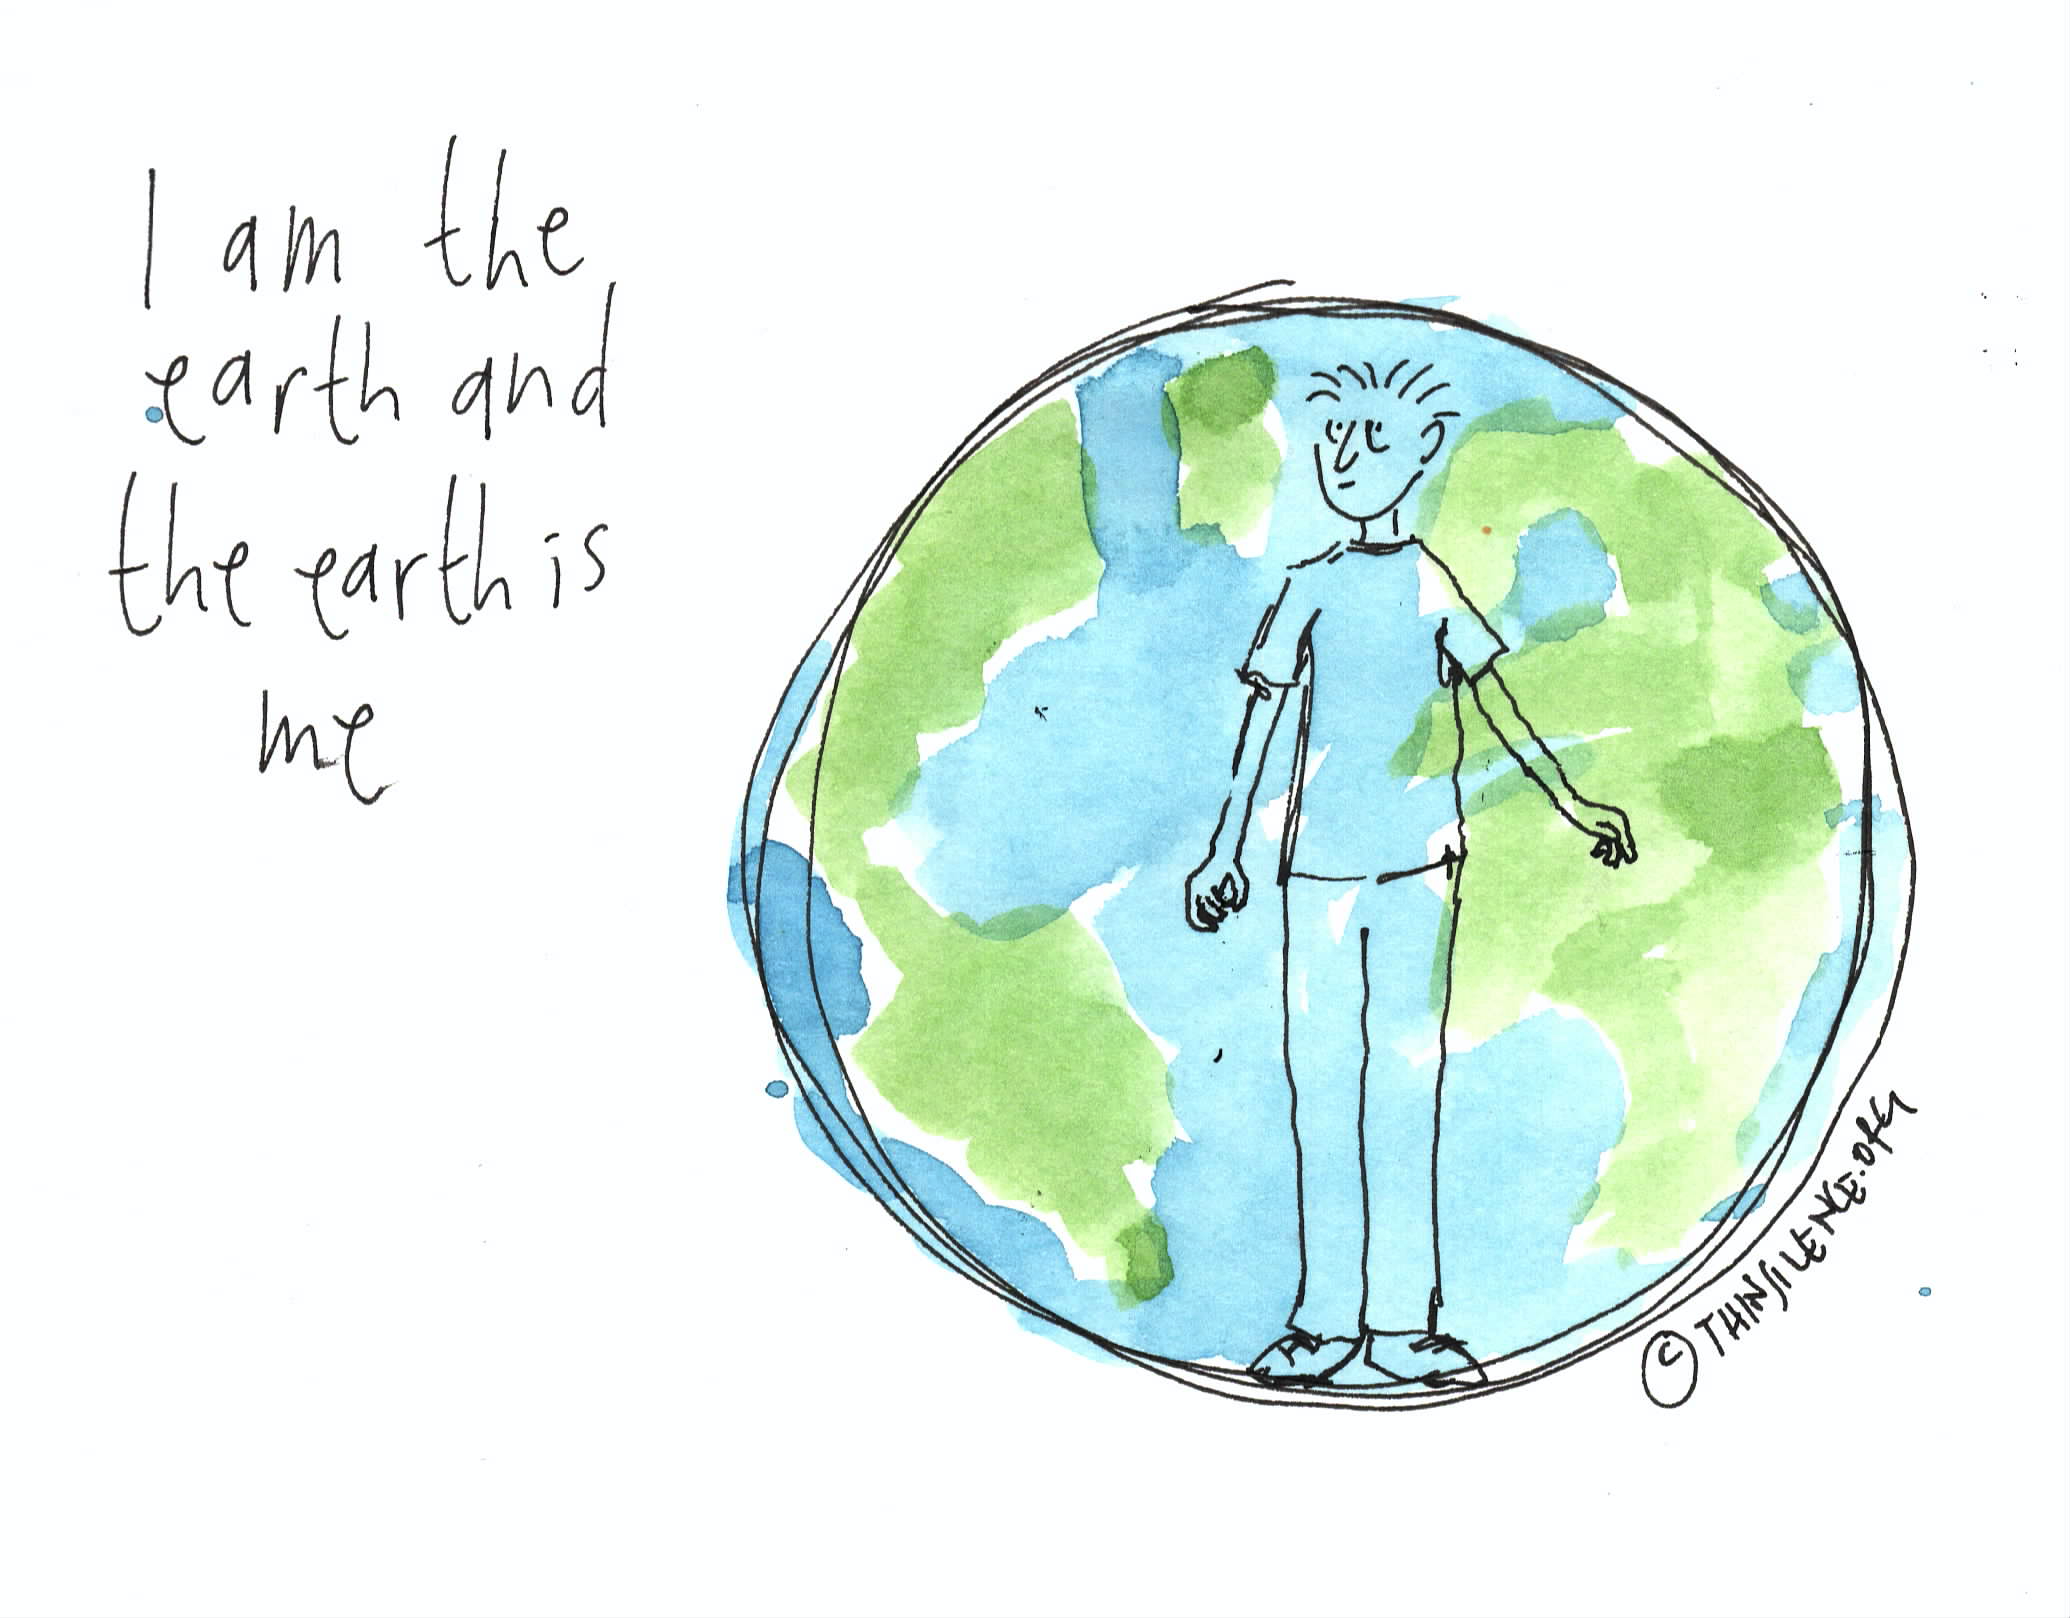 I am the
earth and
the earth is
me
© THINSILENCE.ORG